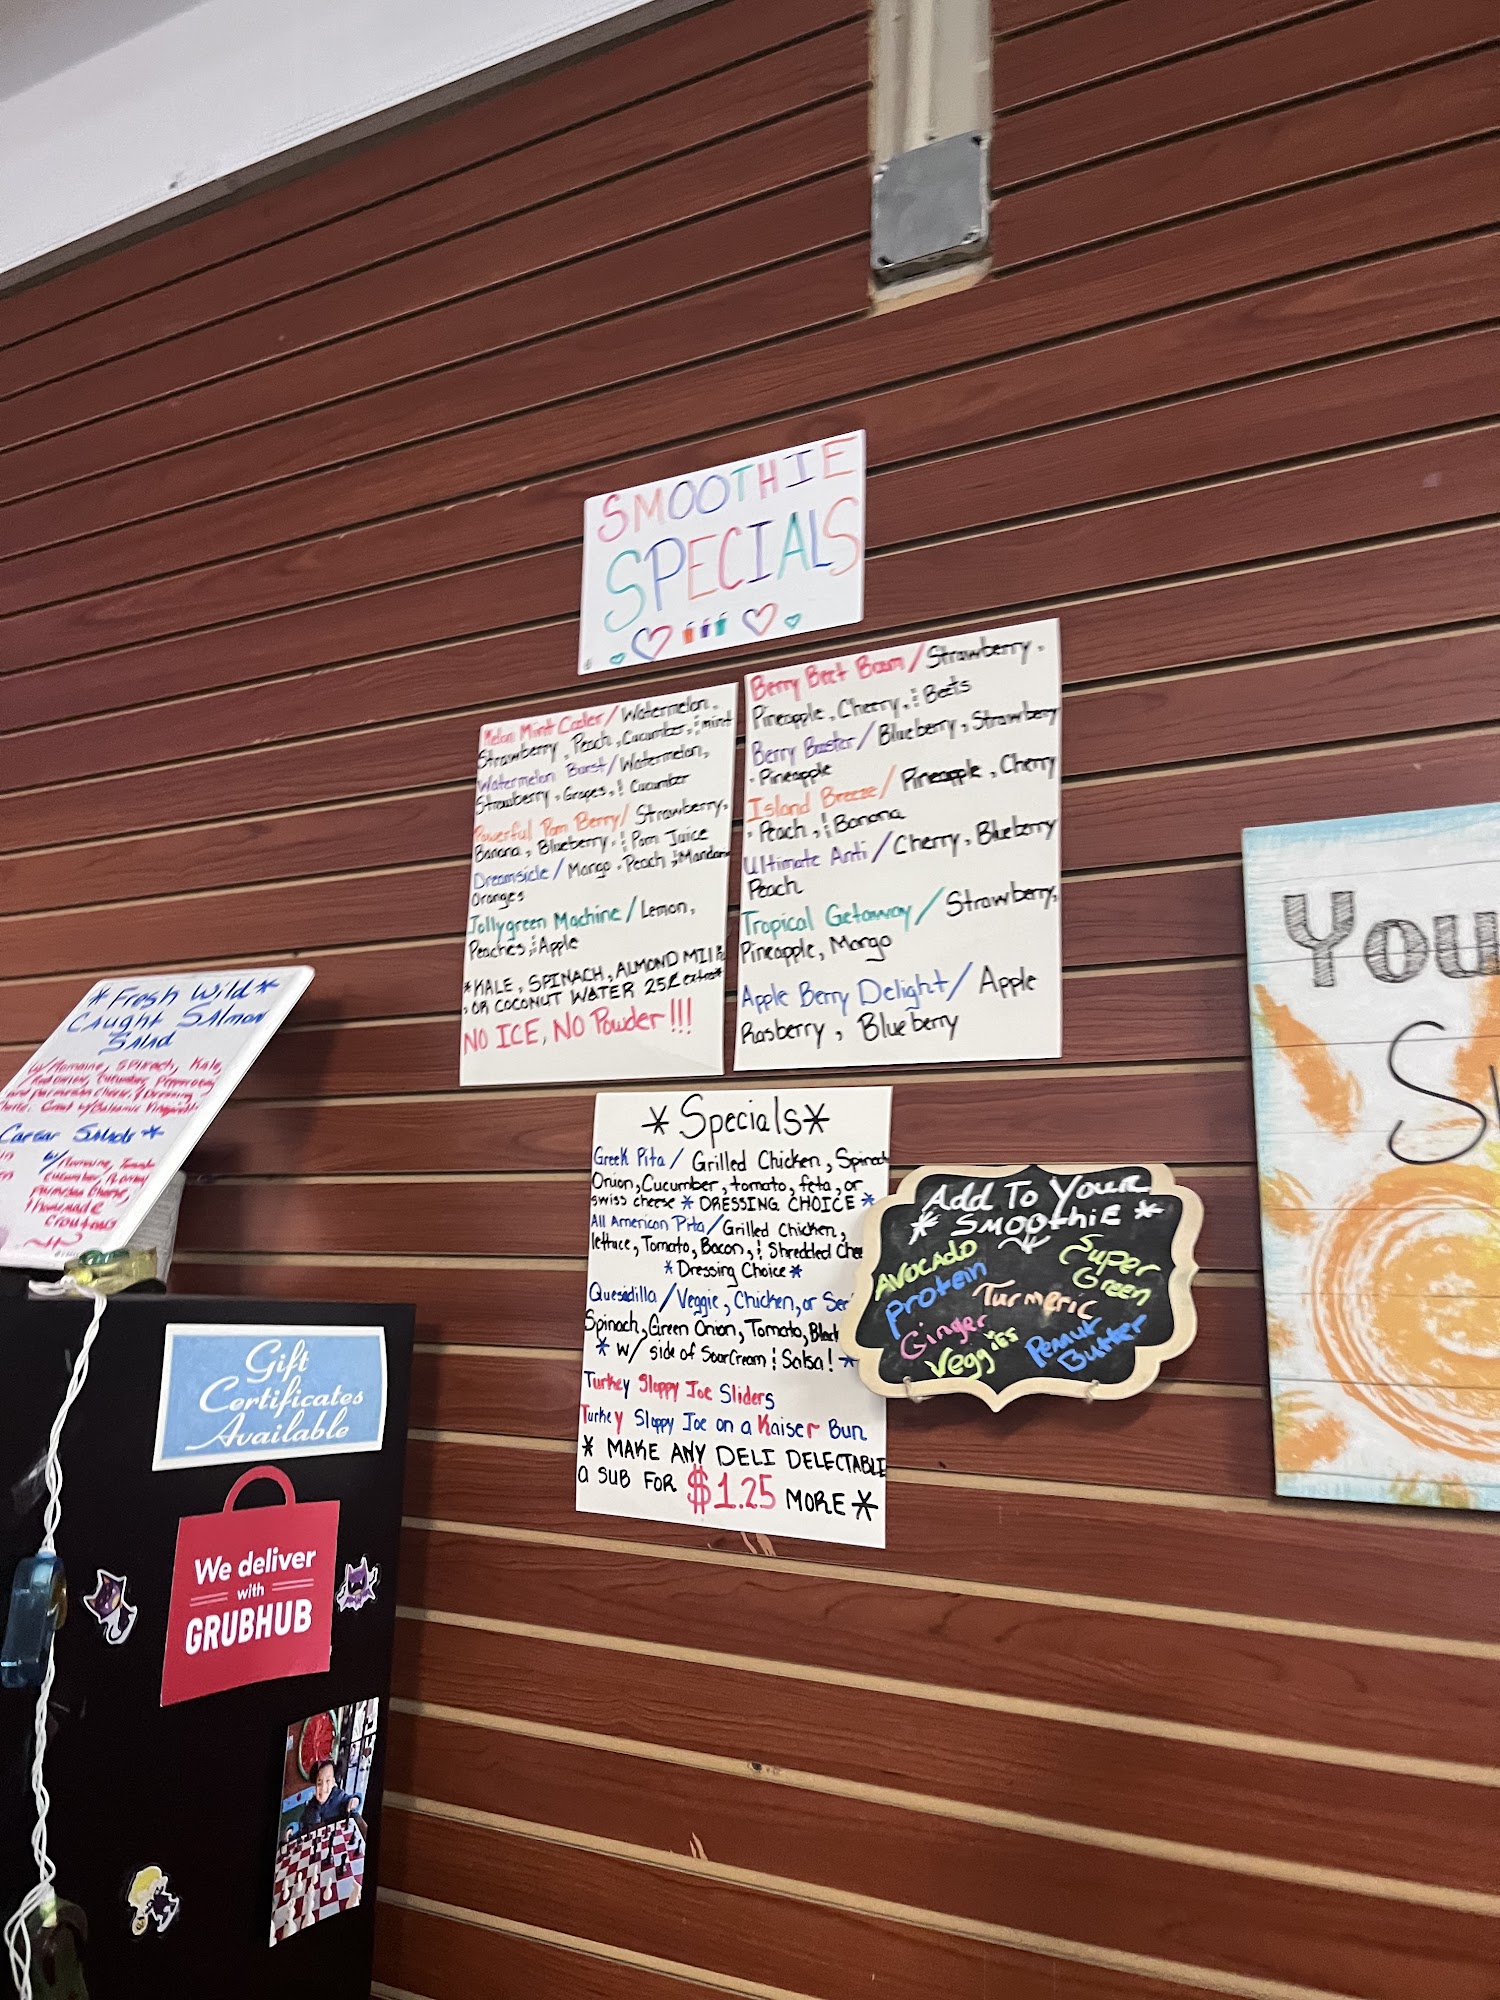 SMOOTHIE
SPECIALS
Melon Mint Cooler / Watermelon,
Strawberry, Peach, Cucumber, & mint
Watermelon Burst / Watermelon,
Strawberry, Grapes, & Cucumber
Powerful Pom Berry / Strawberry,
Banana, Blueberry, & Pom Juice
Dreamsicle / Mango, Peach & Mandarin
Oranges
Jollygreen Machine / Lemon,
Peaches, & Apple
*KALE, SPINACH, ALMOND MILK
, OR COCONUT WATER 25¢ extra*
NO ICE, NO Powder!!!
Berry Beet Boom / Strawberry,
Pineapple, Cherry, & Beets
Berry Buster / Blueberry, Strawberry
, Pineapple
Island Breeze / Pineapple, Cherry
, Peach, & Banana
Ultimate Anti / Cherry, Blueberry
Peach
Tropical Getaway / Strawberry,
Pineapple, Mango
Apple Berry Delight / Apple
Rasberry, Blueberry
*Specials*
Greek Pita / Grilled Chicken, Spinach
Onion, Cucumber, tomato, feta, or
swiss cheese * DRESSING CHOICE *
All American Pita / Grilled Chicken,
lettuce, Tomato, Bacon, & Shredded Chee
* Dressing Choice *
Quesadilla / Veggie, Chicken, or
Spinach, Green Onion, Tomato, Black
* w/ side of Sour Cream & Salsa! *
Turkey Sloppy Joe Sliders
Turkey Sloppy Joe on a Kaiser Bun
* MAKE ANY DELI DELECTABLE
a SUB FOR $1.25 MORE *
Add To Your
* Smoothie *
Avocado
Super
Green
Protein
Turmeric
Ginger
Peanut
Butter
Veggies
You
*Fresh Wild*
Caught Salmon
Salad
w/Romaine, Spinach, Kale,
Red onion, Cucumber,
and parmesan cheese, & Dressing
w/Balsamic
Caesar Salads *
w/Romaine,
Cucumber,
Parmesan Cheese,
Homemade
Croutons
Gift
Certificates
Available
We deliver
with
GRUBHUB